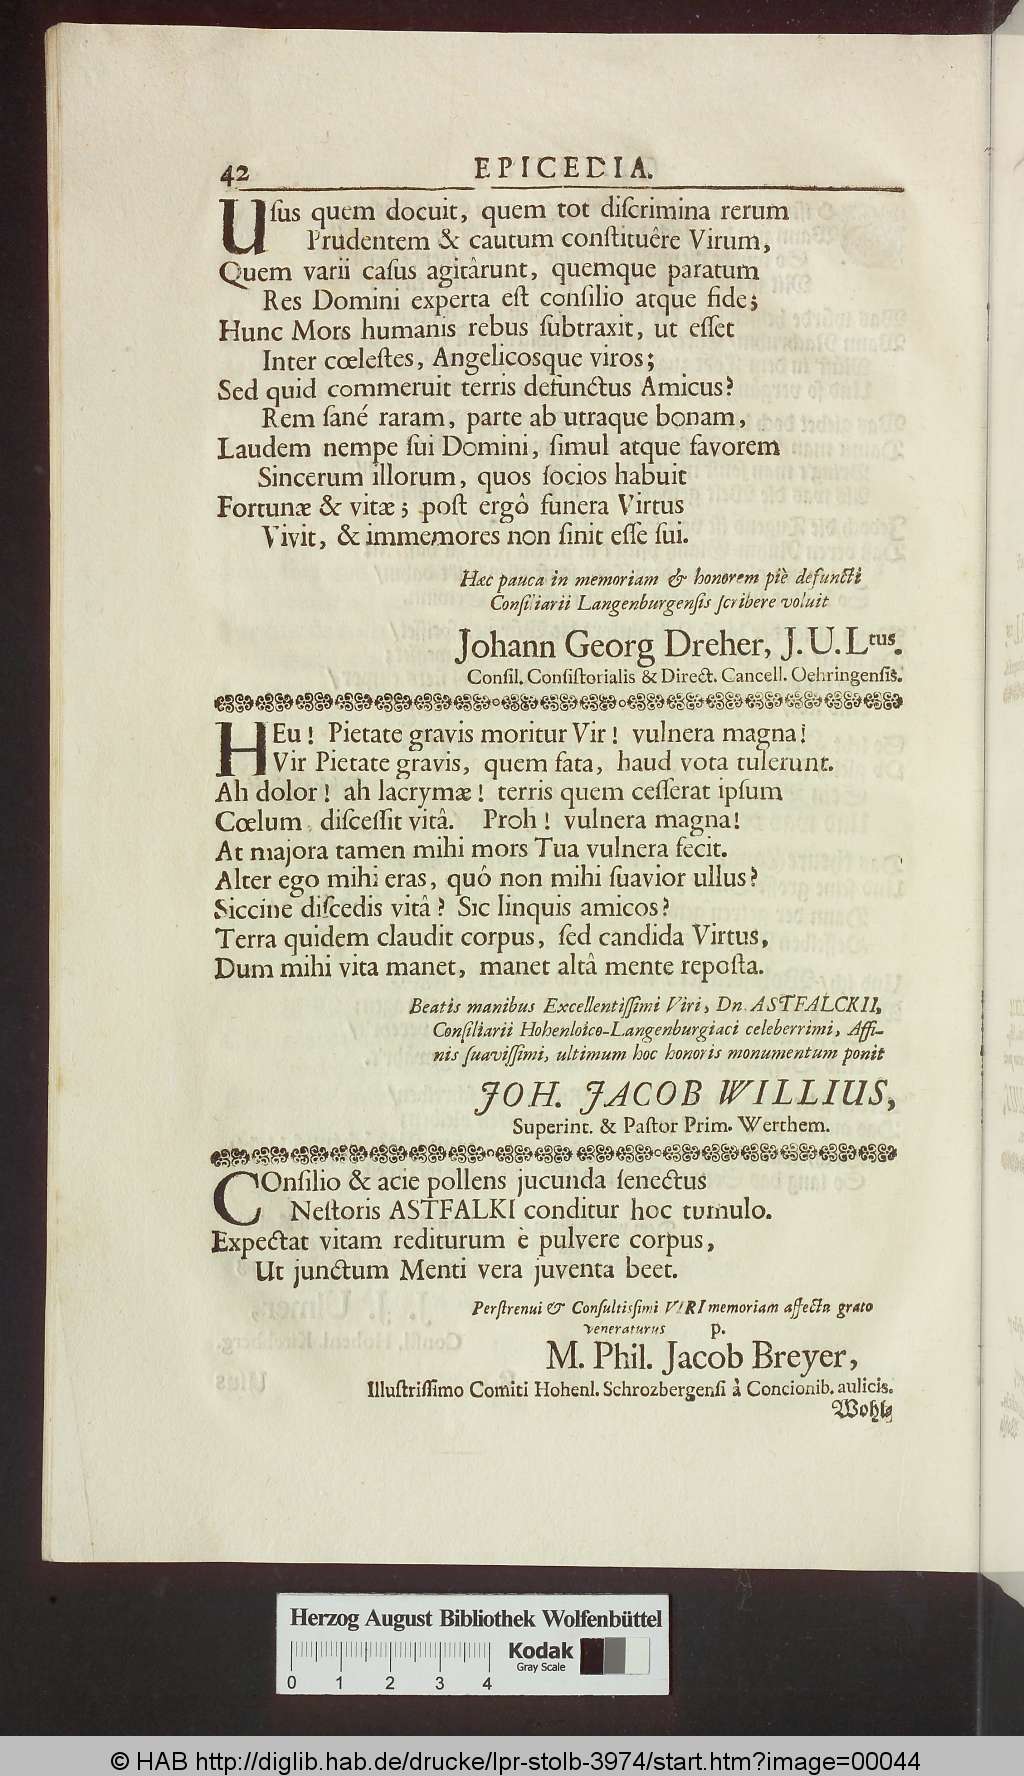 42 EPICEDIA.
Uſus quem docuit, quem tot diſcrimina rerum
Prudentem & cautum conſtituêre Virum,
Quem varii caſus agitârunt, quemque paratum
Res Domini experta eſt conſilio atque fide;
Hunc Mors humanis rebus ſubtraxit, ut eſſet
Inter cœleſtes, Angelicosque viros;
Sed quid commeruit terris defunctus Amicus?
Rem ſané raram, parte ab utraque bonam,
Laudem nempe ſui Domini, ſimul atque favorem
Sincerum illorum, quos ſocios habuit
Fortunæ & vitæ; poſt ergô funera Virtus
Vivit, & immemores non ſinit eſſe ſui.
Hæc pauca in memoriam & honorem piè defuncti
Conſiliarii Langenburgenſis ſcribere voluit
Johann Georg Dreher, J.U.Ltus.
Conſil. Conſiſtorialis & Direct. Cancell. Oehringenſis.
HEu! Pietate gravis moritur Vir! vulnera magna!
Vir Pietate gravis, quem fata, haud vota tulerunt.
Ah dolor! ah lacrymæ! terris quem ceſſerat ipſum
Cœlum, diſceſſit vitâ. Proh! vulnera magna!
At majora tamen mihi mors Tua vulnera fecit.
Alter ego mihi eras, quô non mihi ſuavior ullus?
Siccine diſcedis vitâ? Sic linquis amicos?
Terra quidem claudit corpus, ſed candida Virtus,
Dum mihi vita manet, manet altâ mente repoſta.
Beatis manibus Excellentiſſimi Viri, Dn. ASTFALCKII,
Conſiliarii Hohenloico-Langenburgiaci celeberrimi, Affi-
nis ſuaviſſimi, ultimum hoc honoris monumentum ponit
JOH. JACOB WILLIUS,
Superint. & Paſtor Prim. Werthem.
COnſilio & acie pollens jucunda ſenectus
Neſtoris ASTFALKI conditur hoc tumulo.
Expectat vitam rediturum è pulvere corpus,
Ut junctum Menti vera juventa beet.
Perſtrenui & Conſultiſſimi VIRI memoriam affectu grato
veneraturus p.
M. Phil. Jacob Breyer,
Illuſtriſſimo Comiti Hohenl. Schrozbergenſi à Concionib. aulicis.
Wohl-
Herzog August Bibliothek Wolfenbüttel
Kodak
Gray Scale
0 1 2 3 4
© HAB http://diglib.hab.de/drucke/lpr-stolb-3974/start.htm?image=00044